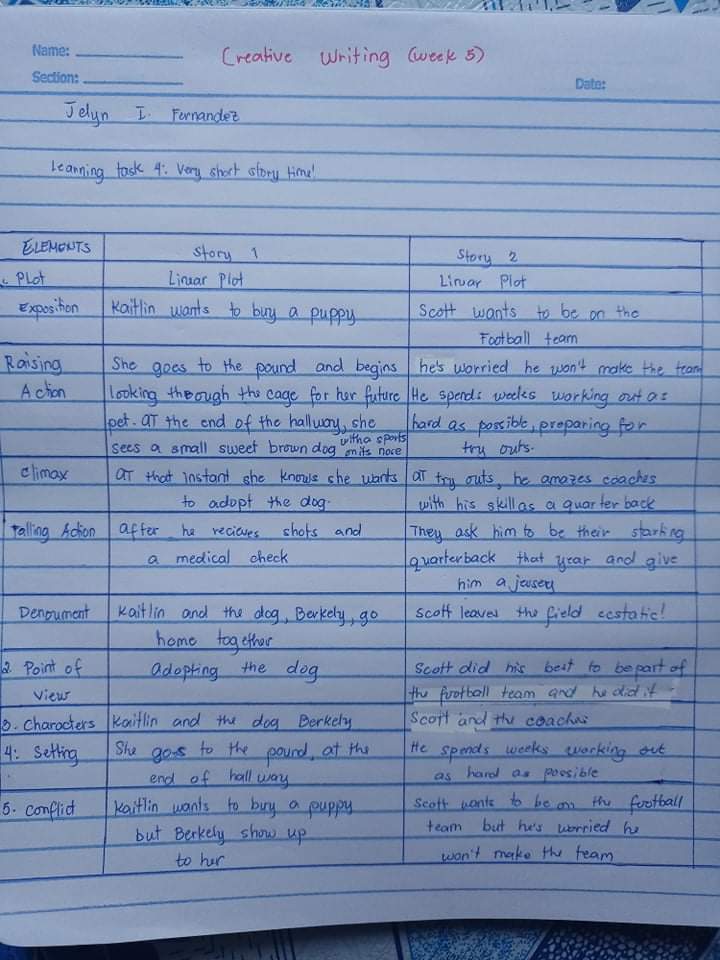 Name:
Creative Writing (week 5)
Section:
Date:
Jelyn I. Fernandez
Learning task 4: Very short story time!
ELEMENTS
Story 1
Story 2
. PLOT
Linear Plot
Linear Plot
Exposition
Kaitlin wants to buy a puppy
Scott wants to be on the
Football team
Raising
Action
She goes to the pound and begins
looking through the cage for her future
pet. AT the end of the hallway, she
sees a small sweet brown dog with a spots
on its nose
he's worried he won't make the team
He spends weeks working out as
hard as possible, preparing for
try outs.
Climax
AT that instant she knows she wants
to adopt the dog.
AT try outs, he amazes coaches
with his skill as a quarter back
Falling Action
after he recieves shots and
a medical check
They ask him to be their starting
quarterback that year and give
him a jersey
Denoument
Kaitlin and the dog, Berkely, go
home together
Scott leaves the field ecstatic!
2. Point of
View
Adopting the dog
Scott did his best to be part of
the football team and he did it
3. Characters
Kaitlin and the dog Berkely
Scott and the coaches
4: Setting
She goes to the pound, at the
end of hall way
He spends weeks working out
as hard as possible
5. Conflict
Kaitlin wants to buy a puppy
but Berkely show up
to her
Scott wants to be on the football
team but he's worried he
won't make the team